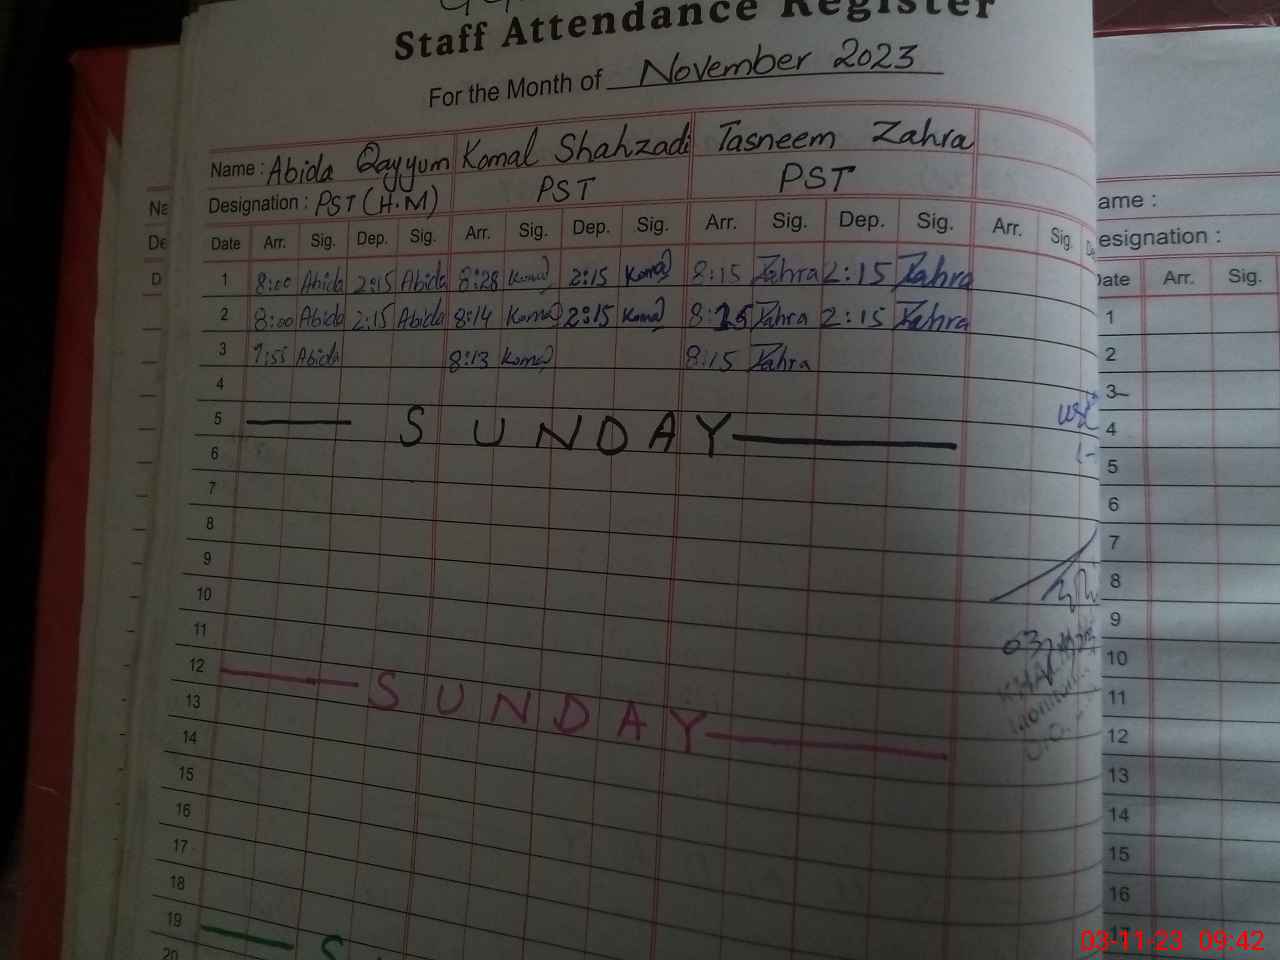 Staff Attendance Register
For the Month of November 2023
Name : Abida Qayyum Komal Shahzadi Tasneem Zahra
Designation : PST (H.M) PST PST
Date Arr. Sig. Dep. Sig. Arr. Sig. Dep. Sig. Arr. Sig. Dep. Sig. Arr. Sig.
1 8:00 Abida 2:15 Abida 8:28 Komal 2:15 Komal 8:15 Zahra 2:15 Zahra
2 8:00 Abida 2:15 Abida 8:14 Komal 2:15 Komal 8:15 Zahra 2:15 Zahra
3 7:55 Abida 8:13 Komal 8:15 Zahra
4
5 SUNDAY
6
7
8
9
10
11
12 SUNDAY
13
14
15
16
17
18
19 S
20
Na
De
D
ame :
esignation :
Date Arr. Sig.
1
2
3
4
5
6
7
8
9
10
11
12
13
14
15
16
17
03-11-23 09:42